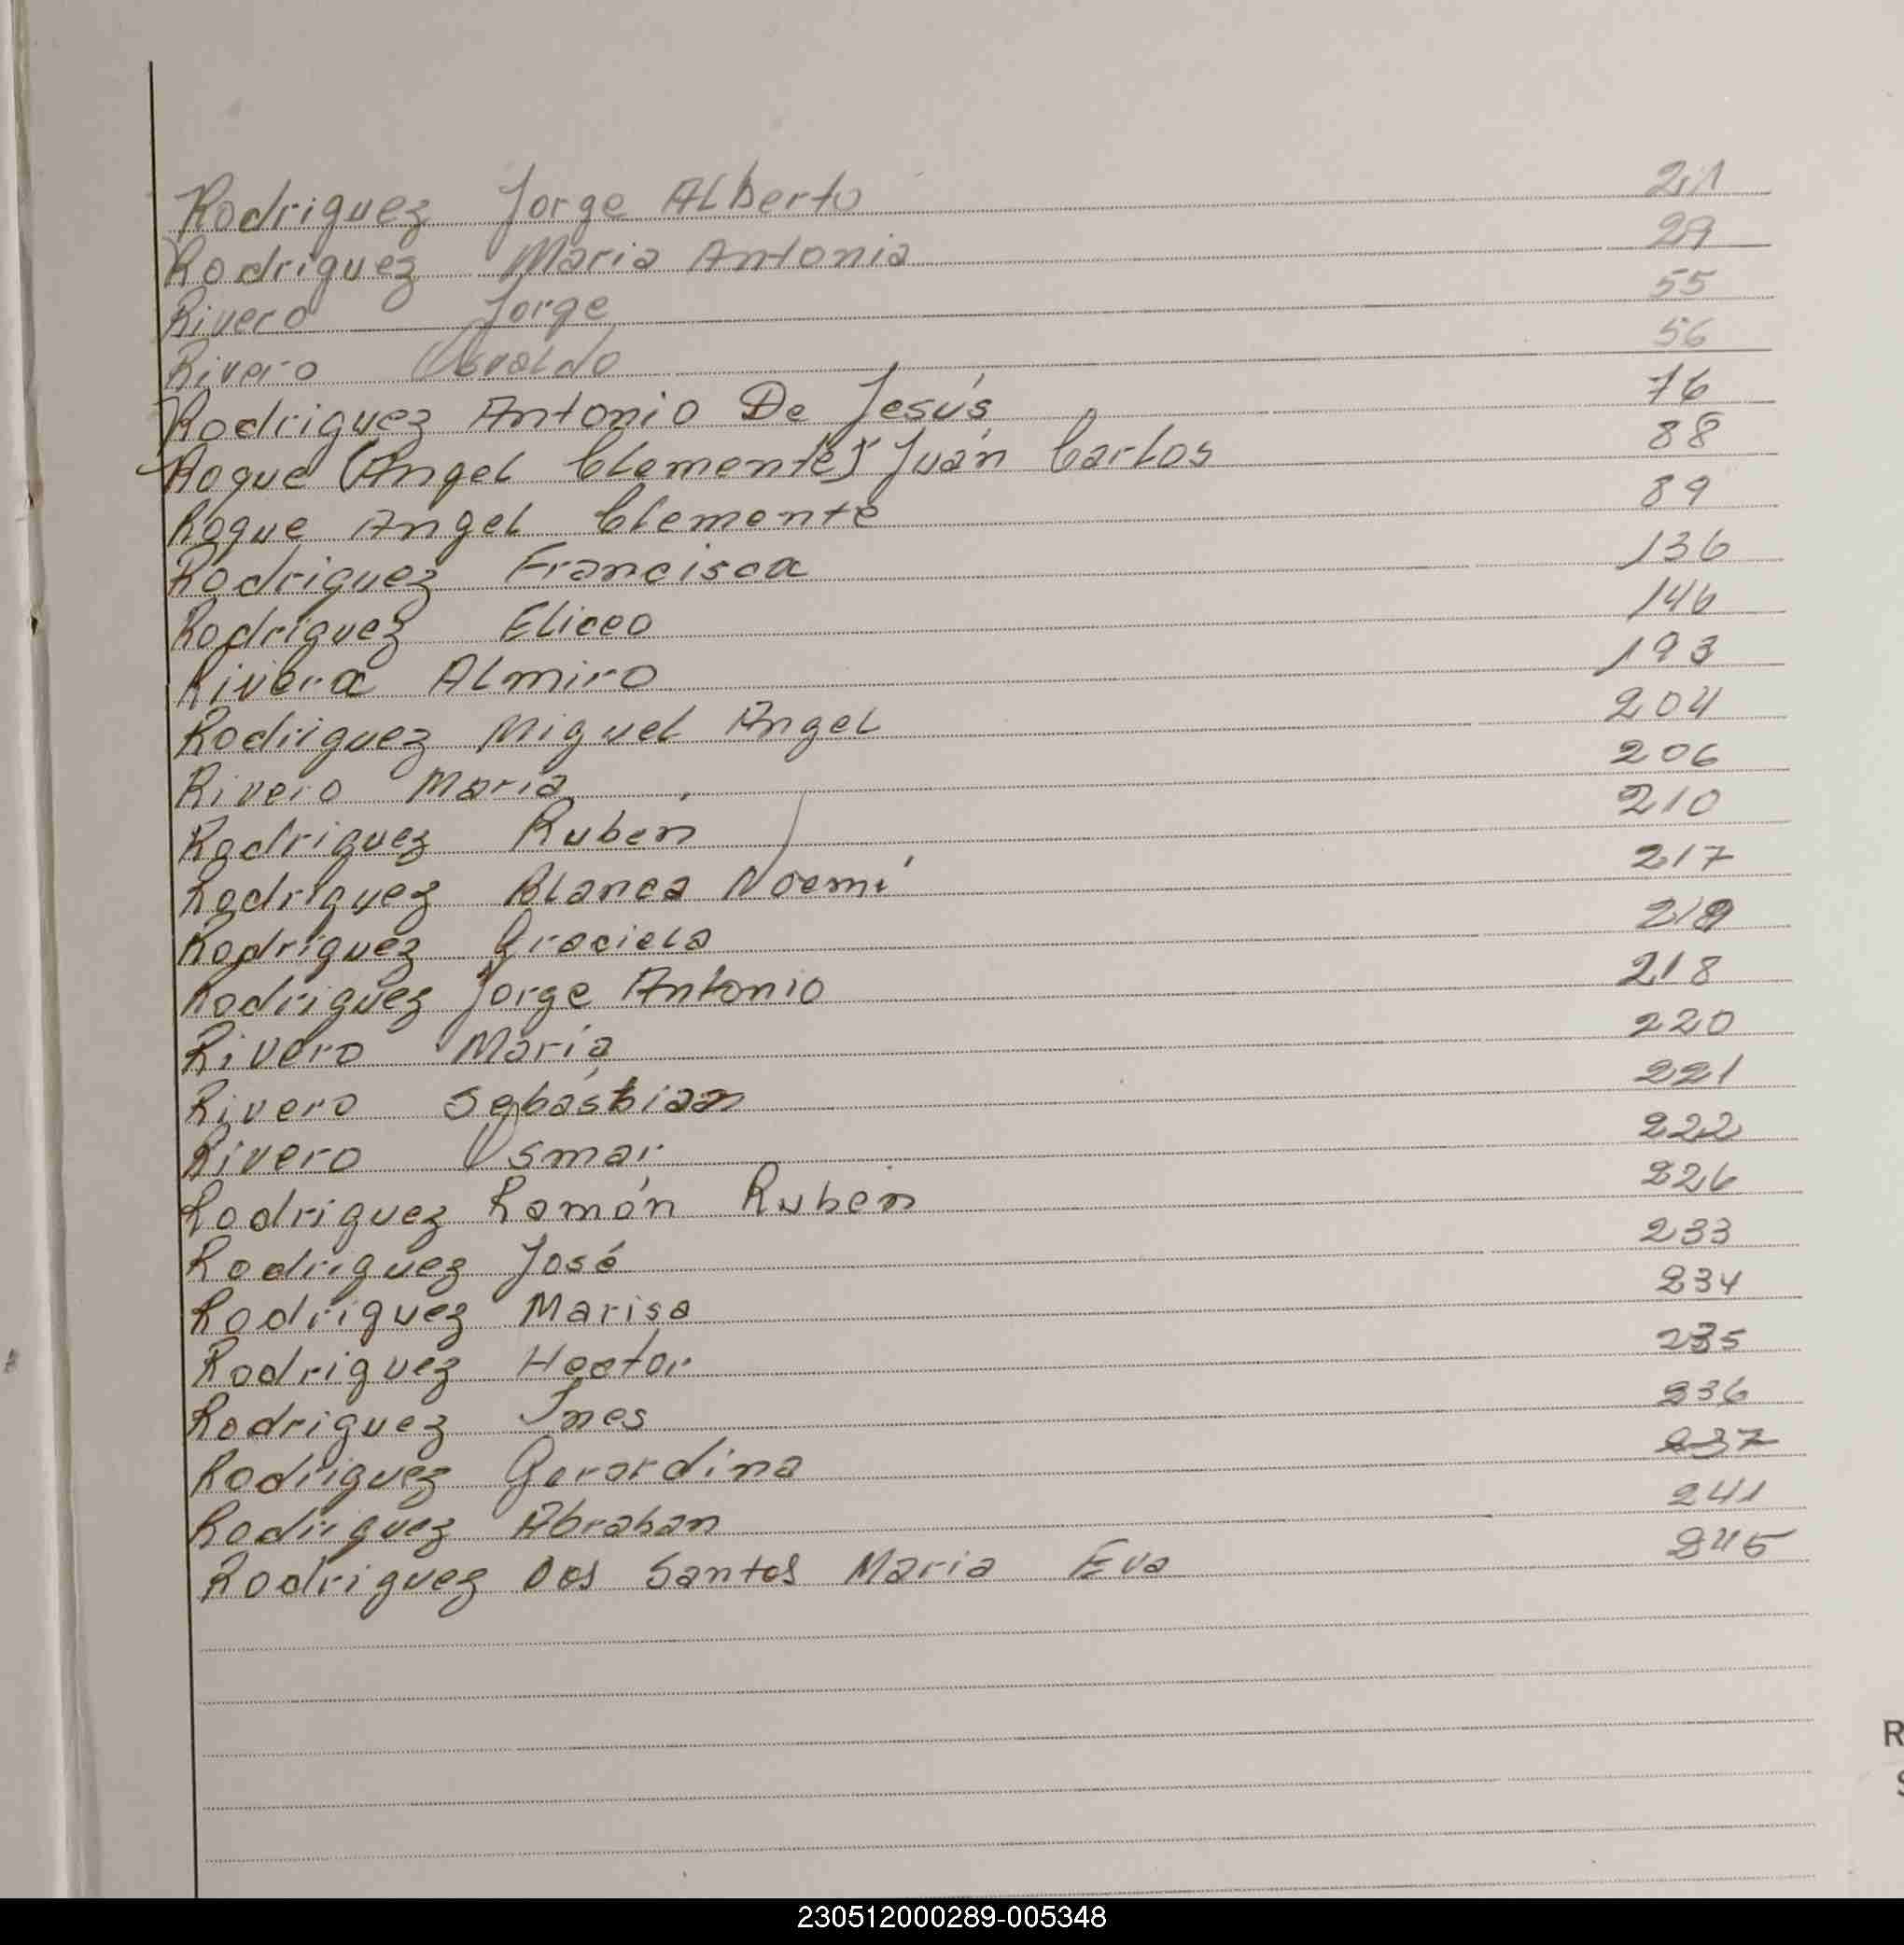 Rodriguez Jorge Alberto 21
Rodriguez Maria Antonia 29
Rivero Jorge 55
Rivero Osvaldo 56
Rodriguez Antonio De Jesús 76
Roque (Angel Clemente) Juan Carlos 88
Roque Angel Clemente 89
Rodriguez Francisca 136
Rodriguez Eliceo 146
Rivera Almiro 193
Rodriguez Miguel Angel 204
Rivero Maria 206
Rodriguez Ruben 210
Rodriguez Blanca Noemí 217
Rodriguez Graciela 219
Rodriguez Jorge Antonio 218
Rivero María 220
Rivero Sebastian 221
Rivero Osmar 222
Rodriguez Ramón Ruben 226
Rodriguez José 233
Rodriguez Marisa 234
Rodriguez Hector 235
Rodriguez Ines 236
Rodriguez Gerardina 237
Rodriguez Abrahan 241
Rodriguez Dos Santos Maria Eva 245
R
S
230512000289-005348